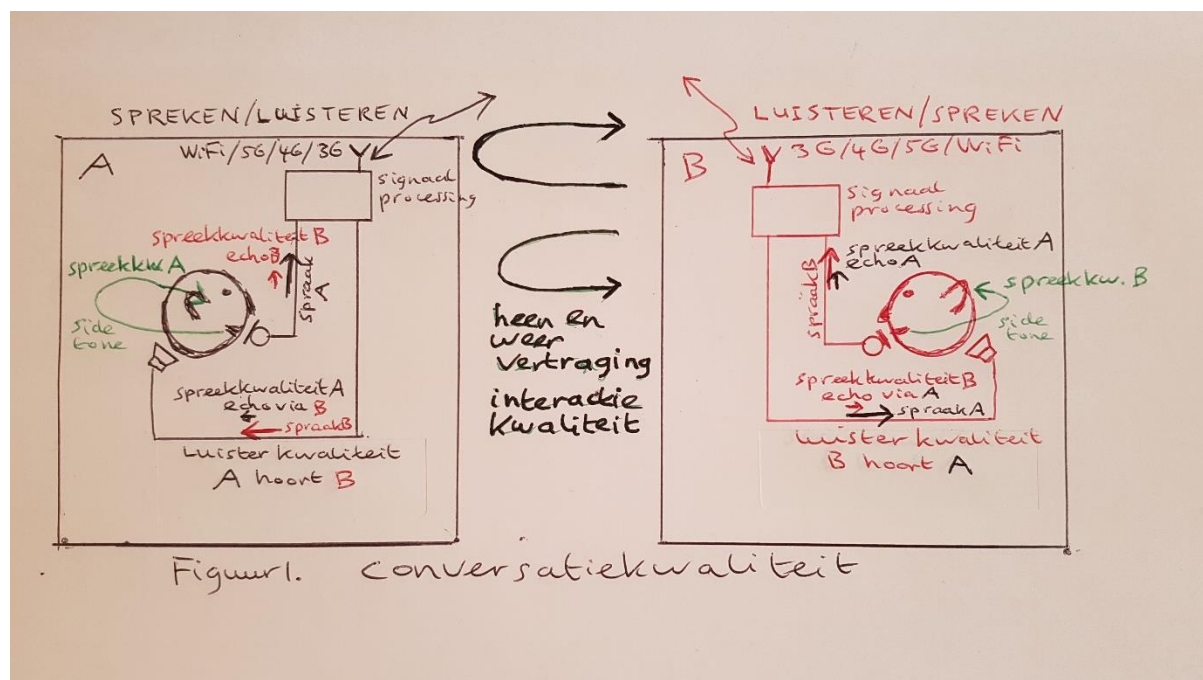 SPREKEN/LUISTEREN
A
WiFi/5G/4G/3G
signaal
processing
spreekkwaliteit B
echo B
spreekkw. A
spraak A
side
tone
spreekkwaliteit A
echo via B
spraak B
Luister kwaliteit
A hoort B
heen en
weer
vertraging
interactie
kwaliteit
LUISTEREN/SPREKEN
B
3G/4G/5G/WiFi
signaal
processing
spreekkwaliteit A
echo A
spraak B
spreekkw. B
side
tone
spreekkwaliteit B
echo via A
spraak A
Luister kwaliteit
B hoort A
Figuur 1. Conversatiekwaliteit